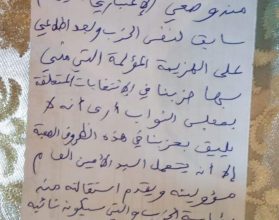 منذ وضعي الاعتباري
سابق لنفس الحزب وبعد اطلاعي
على الهزيمة المؤلمة التي مني
بها حزبنا في الانتخابات المتعلقة
بمجلس النواب أرى أنه لا
يليق بحزبنا في هذه الظروف الصعبة
إلا أن يتحمل السيد الأمين العام
مسؤوليته ويقدم استقالته منه
الحزب والتي ستكون نهائية